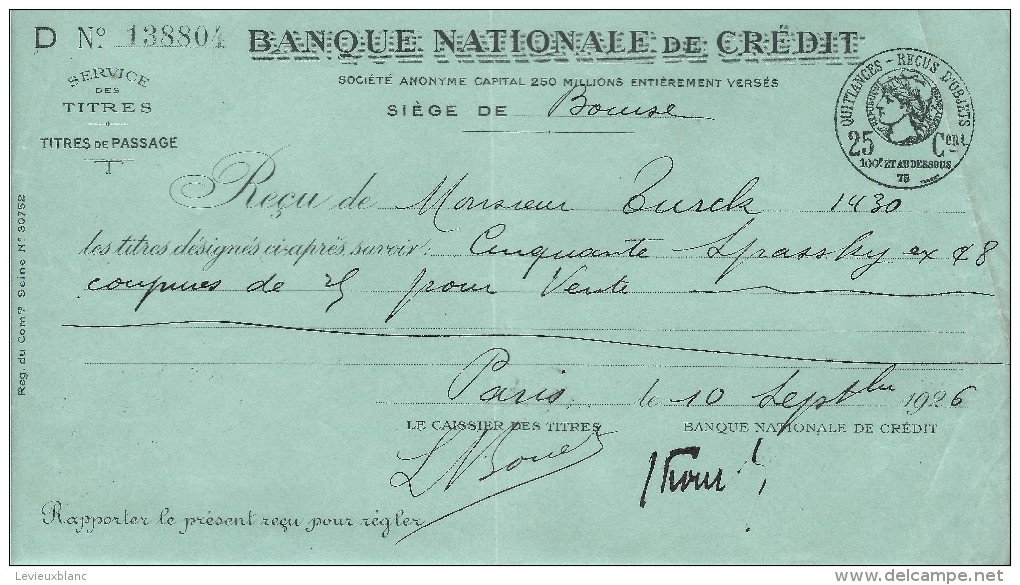 D Nº 138804 BANQUE NATIONALE DE CRÉDIT
SERVICE
DES
TITRES
TITRES DE PASSAGE
SOCIÉTÉ ANONYME CAPITAL 250 MILLIONS ENTIÈREMENT VERSÉS
SIÈGE DE Bourse
QUITTANCES - REÇUS D'OBJETS
25 Cent.
100f ET AU DESSOUS
75
Reçu de Monsieur Turck 1430
les titres désignés ci-après savoir: Cinquante Spassky ex 48
coupures de 25 pour Vente
Paris, le 10 Septbre 1926
LE CAISSIER DES TITRES BANQUE NATIONALE DE CRÉDIT
Rapporter le présent reçu pour régler
Reg. du Com. Seine Nº 30752
Levieuxblanc
delcampe.net